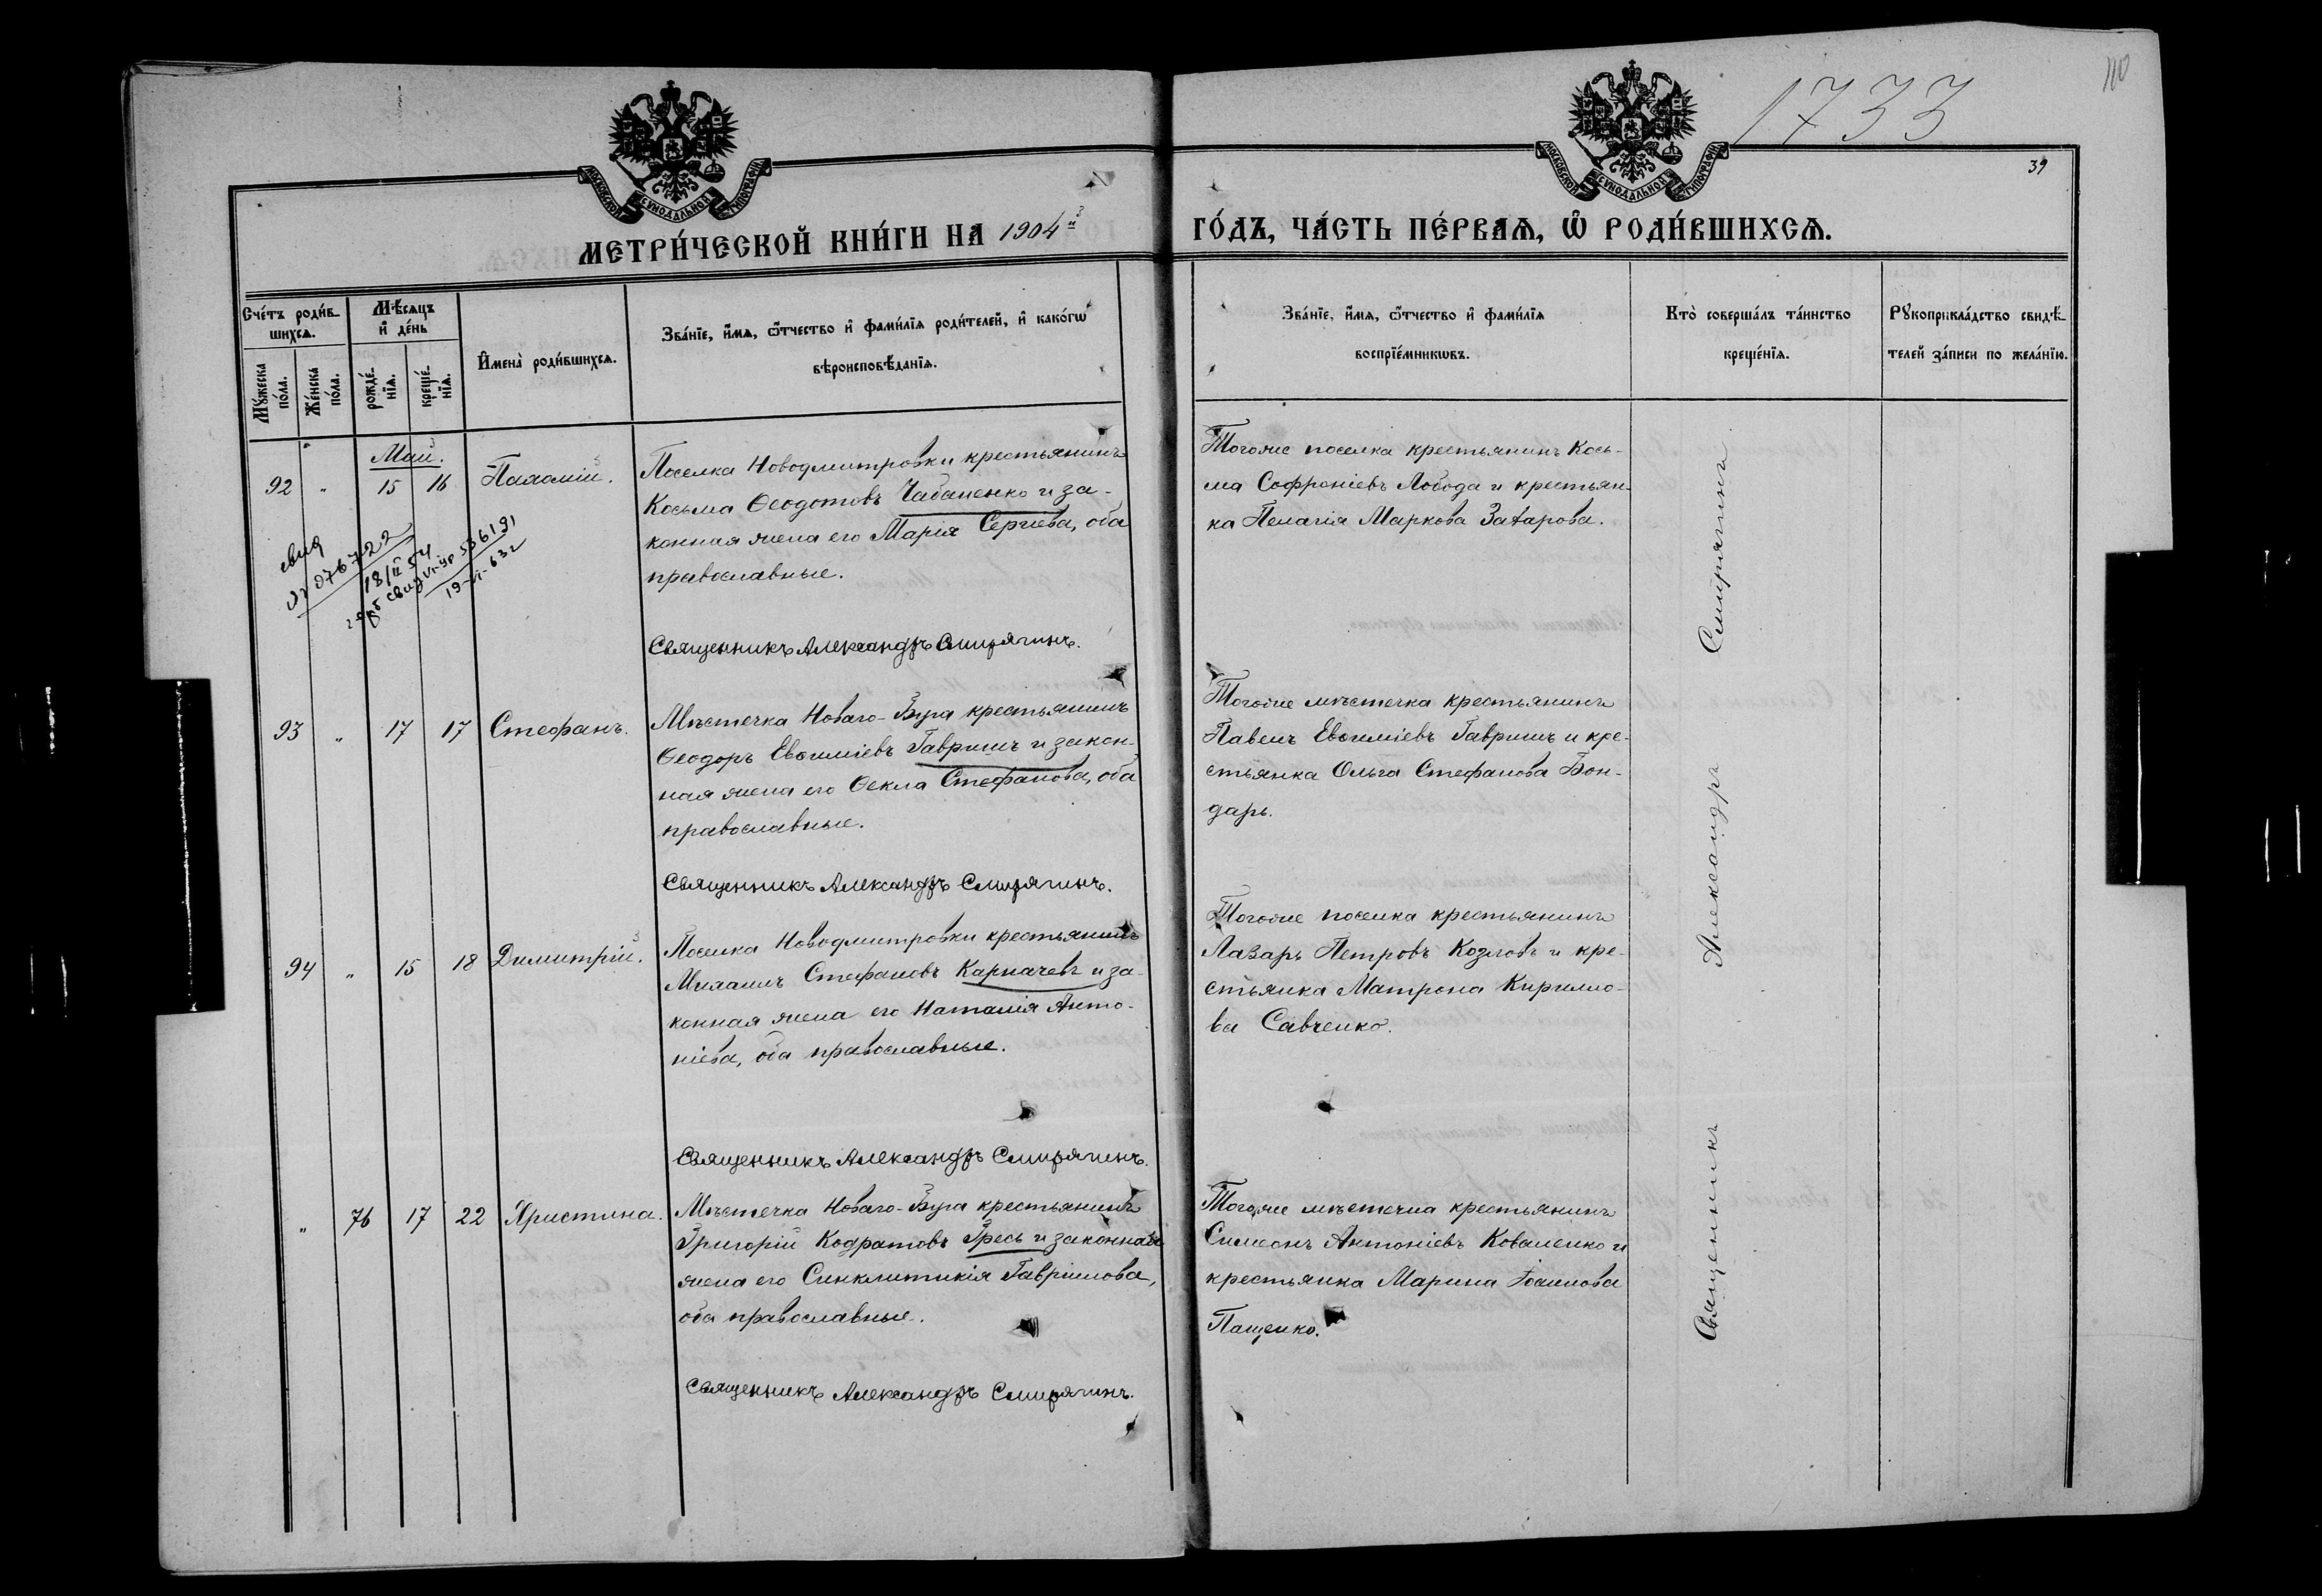 110
1733
39
МОСКОВСКОЙ СѴНОДАЛЬНОЙ ТИПОГРАФІИ
МОСКОВСКОЙ СѴНОДАЛЬНОЙ ТИПОГРАФІИ
МЕТРИ́ЧЕСКОЙ КНИ́ГИ НА 1904й
ГО́ДЪ, ЧА́СТЬ ПЕ́РВАѦ, Ѽ РОДИ́ВШИХСѦ.
Сче́тъ роди́в-
шихсѧ.
Мꙋ́жеска по́ла.
Же́нска по́ла.
Мѣ́сѧцъ и҆ де́нь
рожде́-нїѧ.
креще́-нїѧ.
И҆мена̀ роди́вшихсѧ.
Зва́нїе, и҆́мѧ, ѻ҆́тчество и҆ фами́лїѧ роди́телей, и҆ како́гѡ
вѣроисповѣ́данїѧ.
Зва́нїе, и҆́мѧ, ѻ҆́тчество и҆ фами́лїѧ
воспрїе́мникѡвъ.
Кто̀ соверша́лъ та́инство
креще́нїѧ.
Рꙋкоприкла́дство свидѣ́-
телей за́писи по жела́нїю.
Май.
92 " 15 16 Пахомій.
Поселка Новодмитровки крестьянинъ
Косьма Ѳеодотовъ Чабаненко и за-
конная жена его Марія Сергіева, оба
православные.
Священникъ Александръ Смирягинъ.
Тогоже поселка крестьянинъ Кось-
ма Софроніевъ Лобода и крестьян-
ка Пелагія Маркова Захарова.
свид
076722
18/II 54
19-VI-63г
93 " 17 17 Стефанъ.
Мѣстечка Новаго-Буга крестьянинъ
Ѳеодоръ Евѳиміевъ Гавришъ и закон-
ная жена его Ѳекла Стефанова, оба
православные.
Священникъ Александръ Смирягинъ.
Тогоже мѣстечка крестьянинъ
Павелъ Евѳиміевъ Гавришъ и кре-
стьянка Ольга Стефанова Бон-
дарь.
94 " 15 18 Димитрій.
Поселка Новодмитровки крестьянинъ
Михаилъ Стефановъ Карпачевъ и за-
конная жена его Наталія Анто-
ніева, оба православные.
Священникъ Александръ Смирягинъ.
Тогоже поселка крестьянинъ
Лазарь Петровъ Козловъ и кре-
стьянка Матрона Кирилло-
ва Савченко.
" 76 17 22 Христина.
Мѣстечка Новаго-Буга крестьянинъ
Григорій Кодратовъ Гресь и законная
жена его Синклитикія Гавріилова,
оба православные.
Священникъ Александръ Смирягинъ.
Тогоже мѣстечка крестьянинъ
Симеонъ Антоніевъ Коваленко и
крестьянка Марина Іоаннова
Пащенко.
Священникъ Александръ Смирягинъ